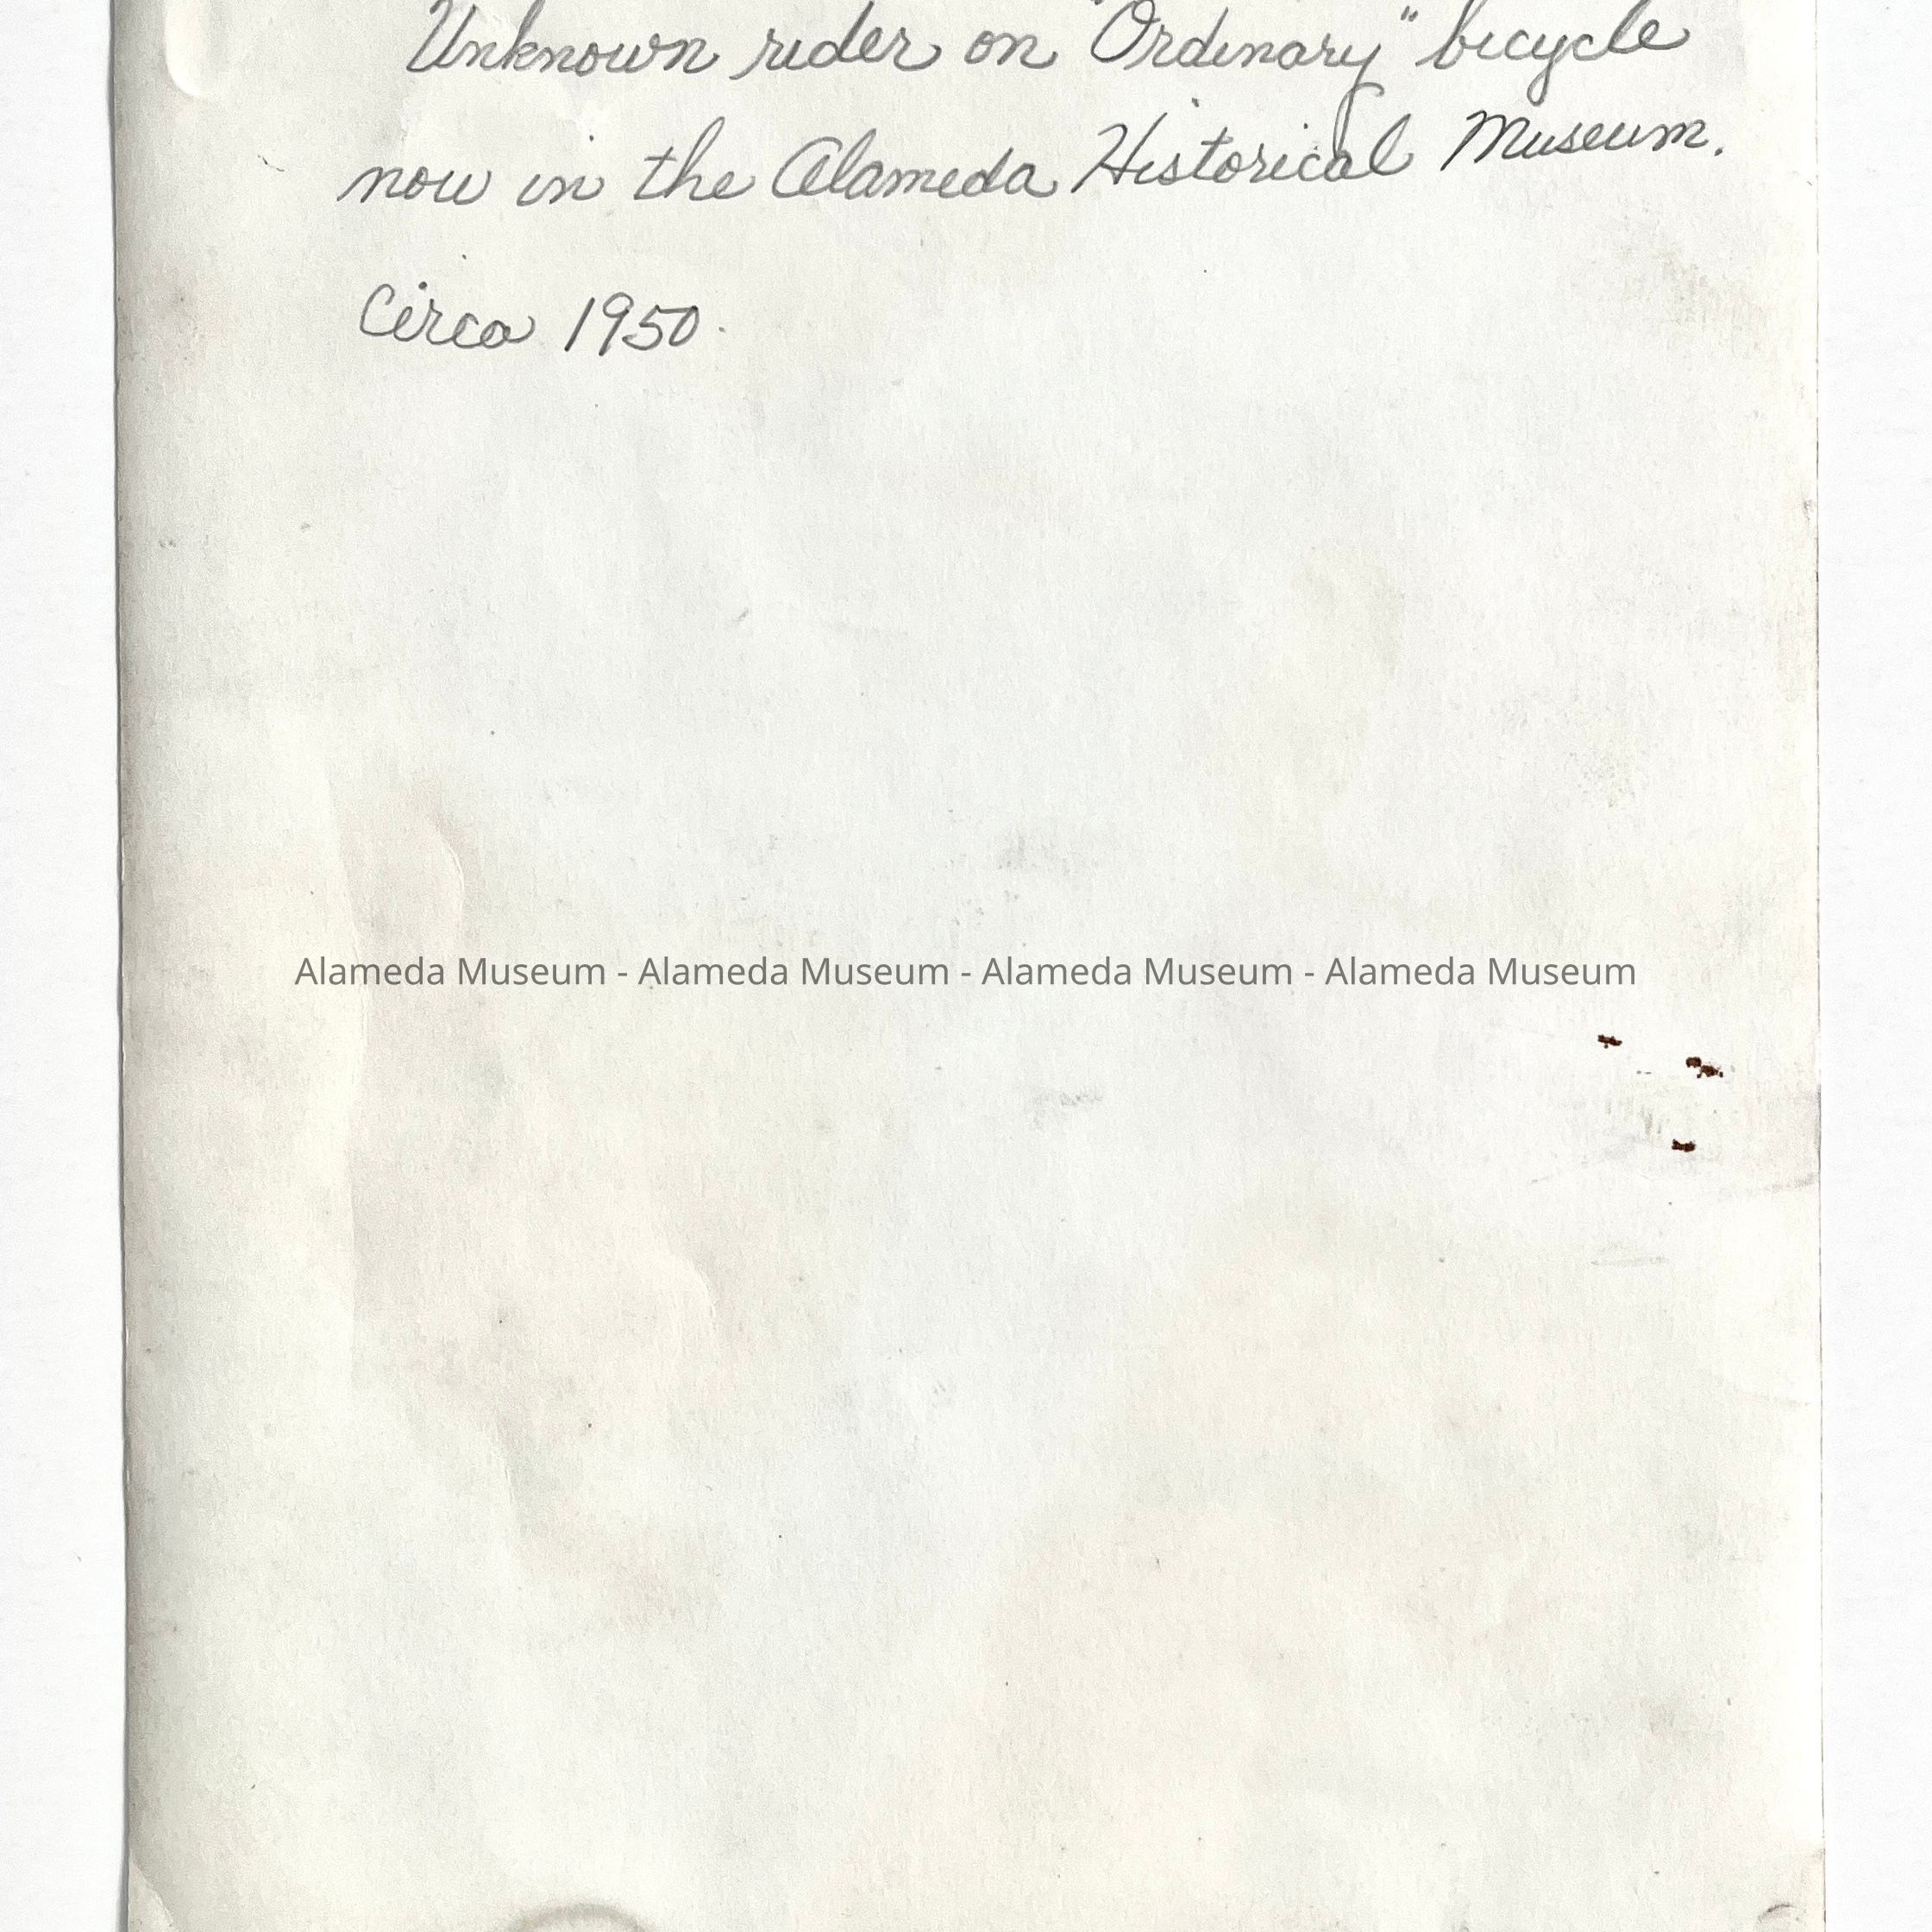 Unknown rider on "Ordinary" bicycle
now in the Alameda Historical Museum.
Circa 1950.
Alameda Museum - Alameda Museum - Alameda Museum - Alameda Museum